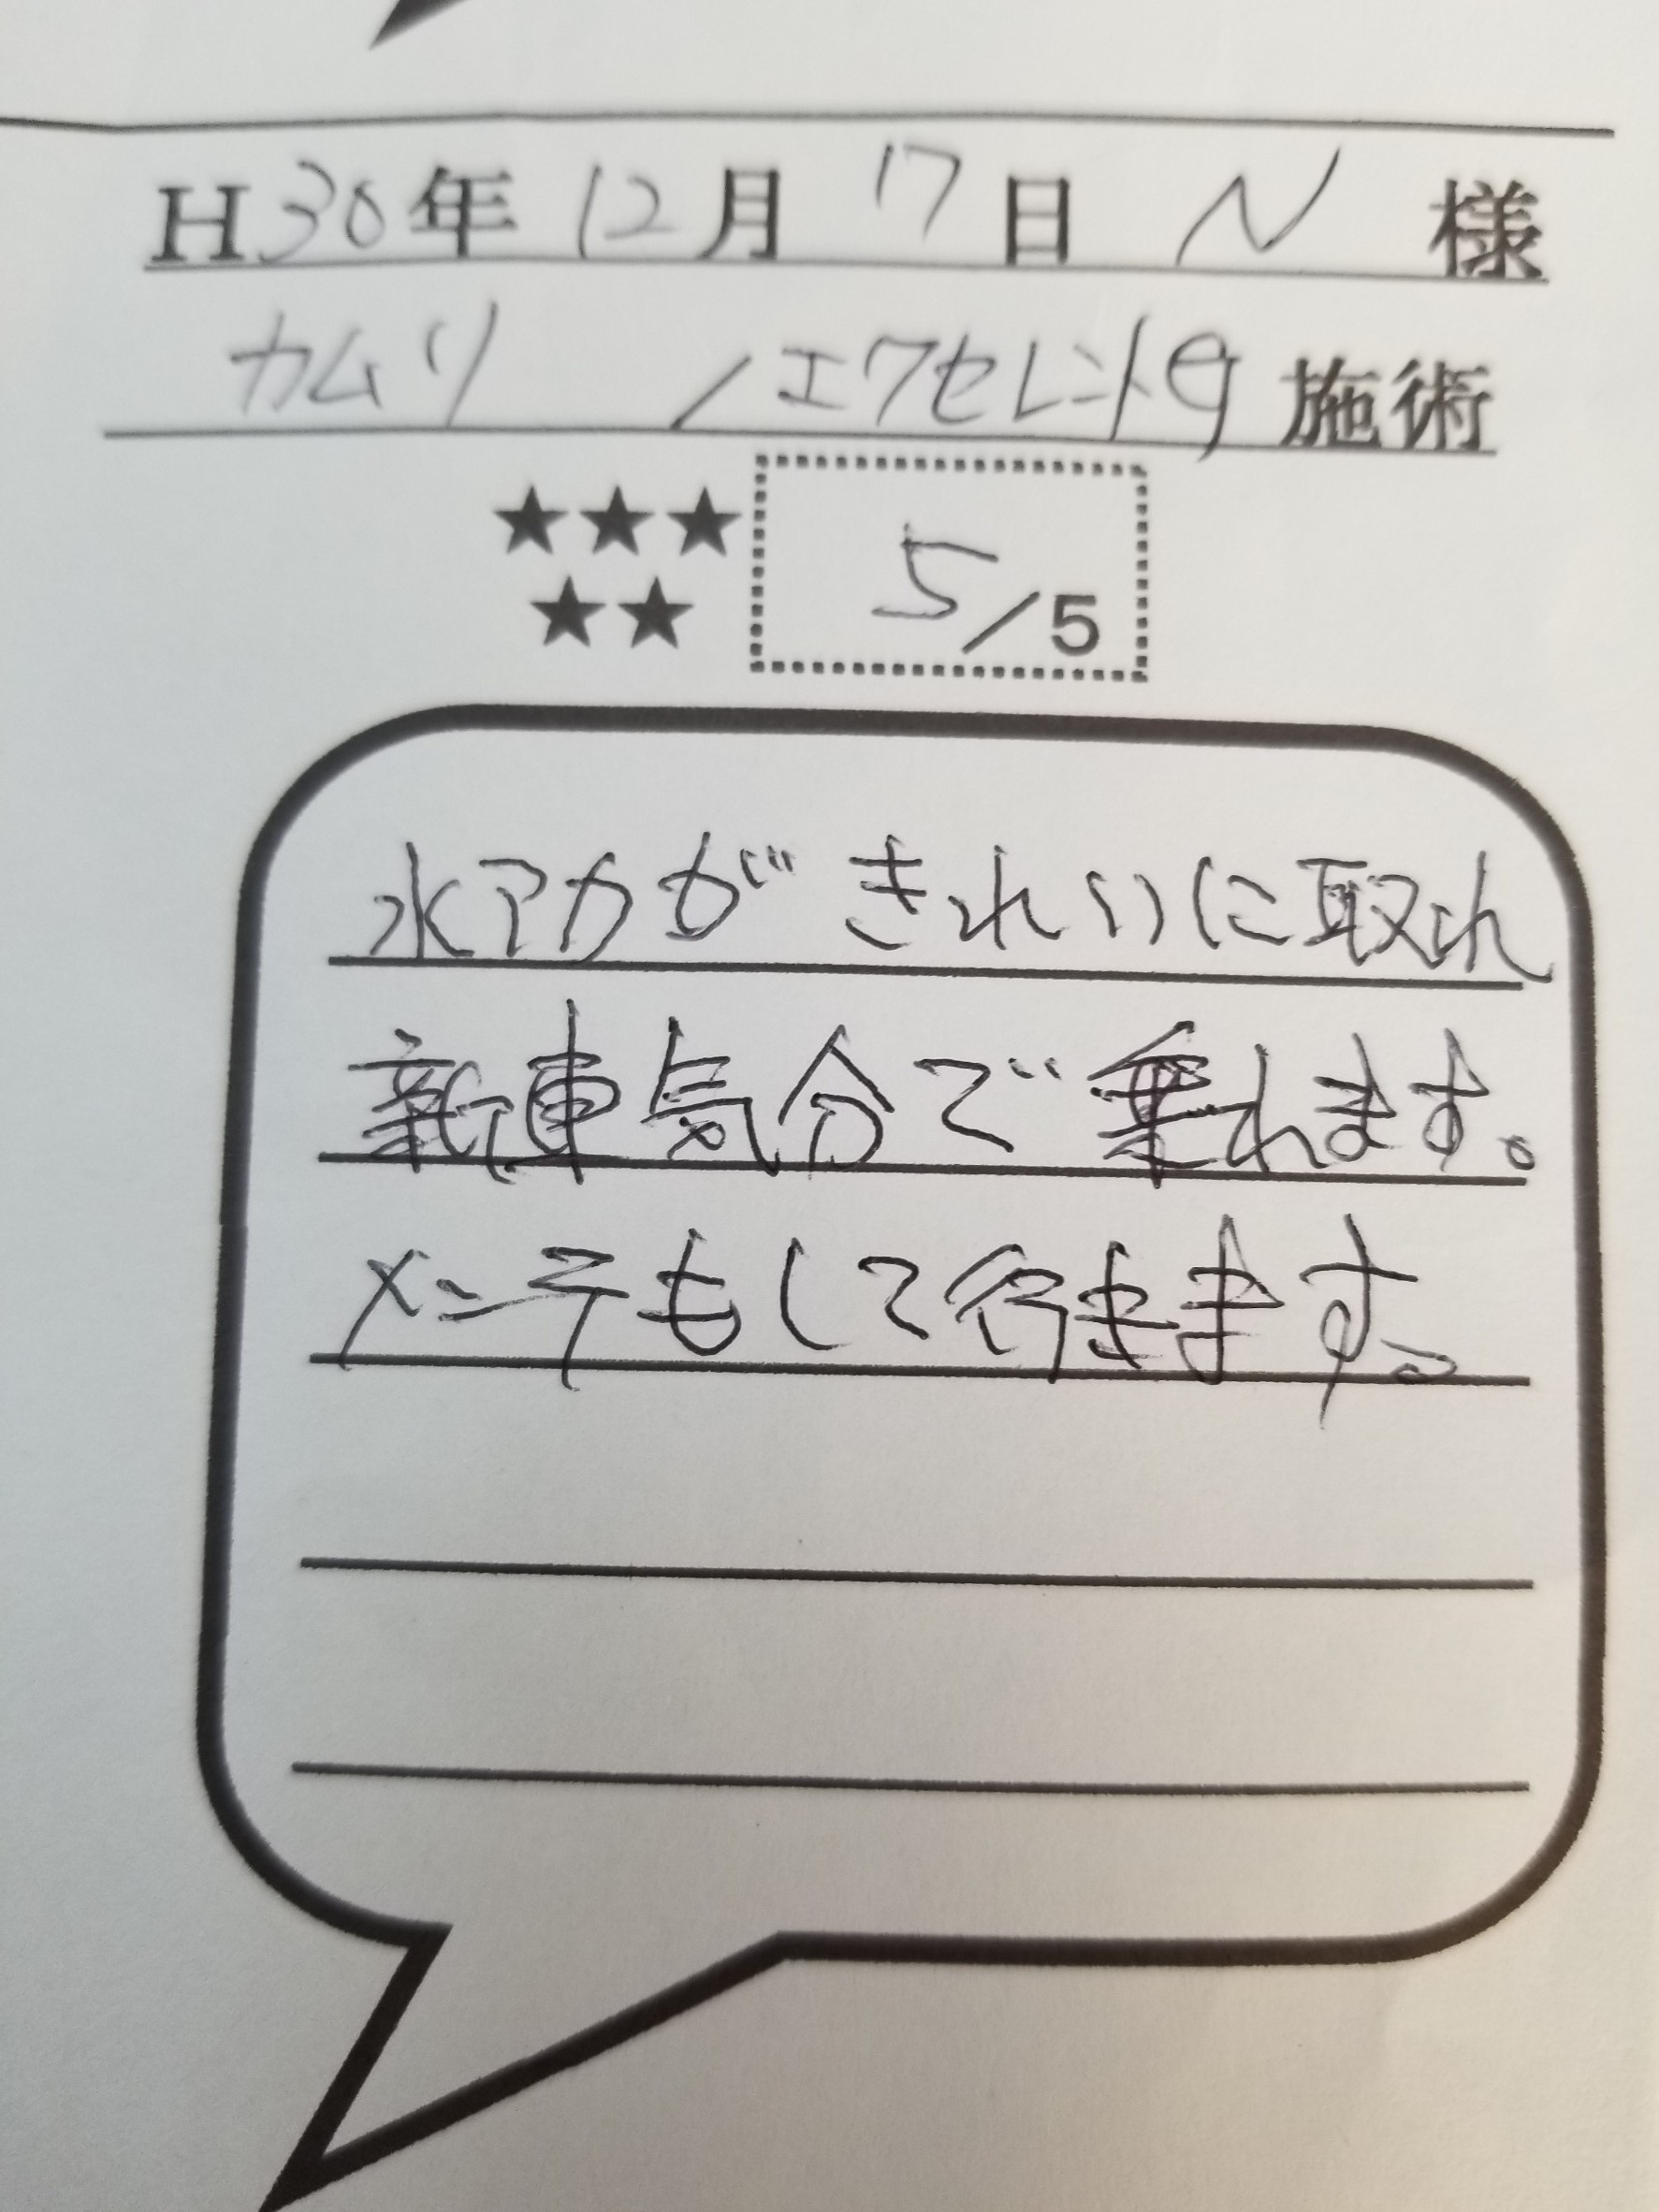 H30年 12月 17日 N 様
カムリ /エクセレントG 施術
★★★
★★ 5/5
水アカが きれいに取れ
新車気分で乗れます。
メンテもして行きます。